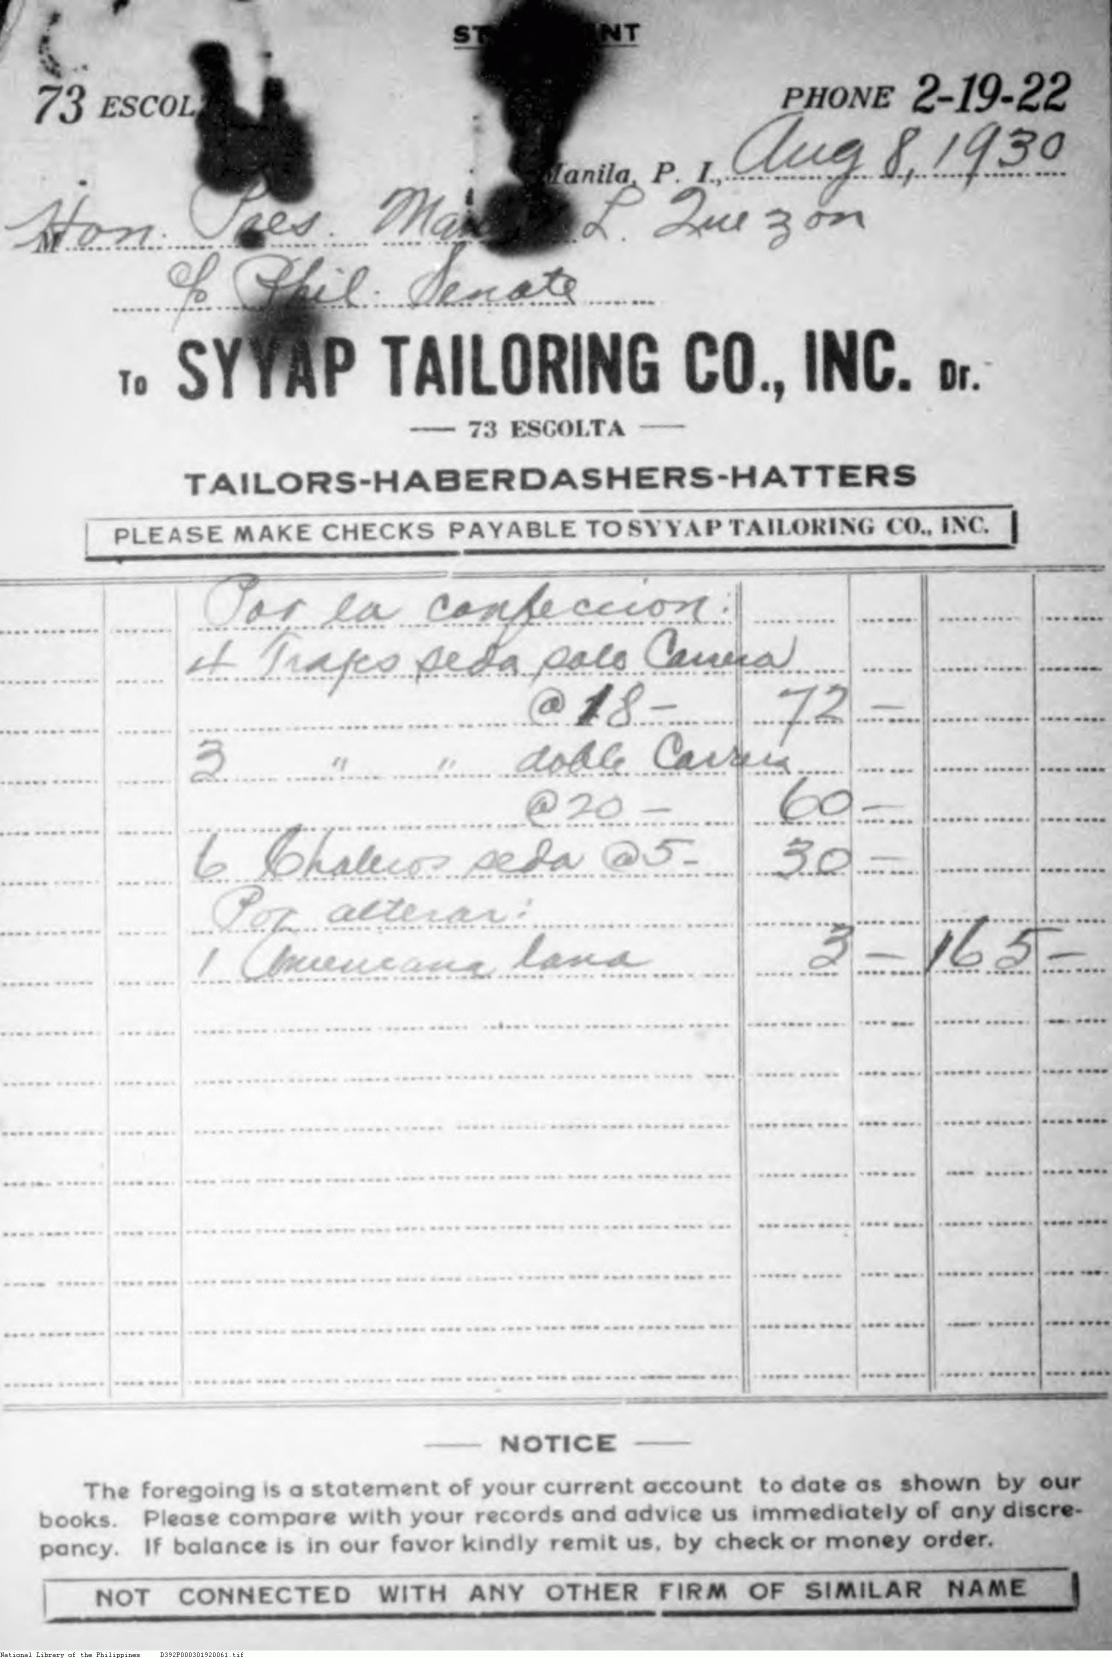 73 ESCOL
PHONE 2-19-22
Manila, P. I., Aug 8, 1930
Hon. Pres. L. Quezon
c/o Phil. Senate
To SYYAP TAILORING CO., INC. Dr.
73 ESCOLTA
TAILORS-HABERDASHERS-HATTERS
PLEASE MAKE CHECKS PAYABLE TO SYYAP TAILORING CO., INC.
Por la confeccion:
4 Trajes seda solo Carrera
@ 18 – 72 –
3 " " doble Carrera
@ 20 – 60 –
6 Chalecos seda @ 5 – 30 –
Por alterar:
1 Americana lana 3 – 165 –
NOTICE
The foregoing is a statement of your current account to date as shown by our
books. Please compare with your records and advice us immediately of any discre-
pancy. If balance is in our favor kindly remit us, by check or money order.
NOT CONNECTED WITH ANY OTHER FIRM OF SIMILAR NAME
National Library of the Philippines D392P000301920061.tif